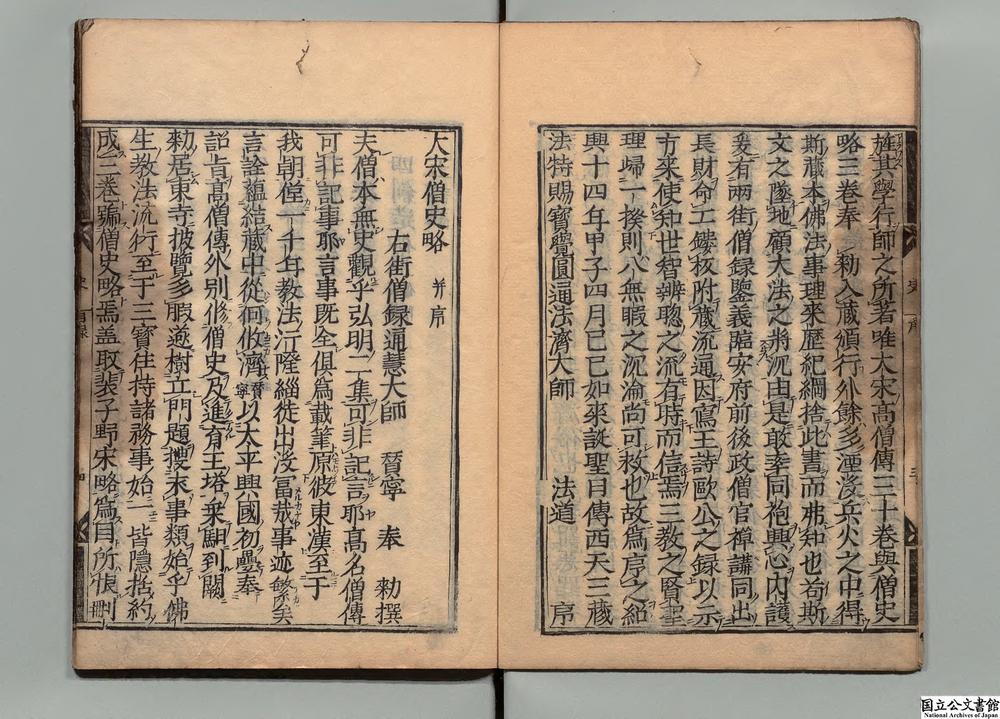 旌其學行師之所若唯大宋高僧傳三十卷與僧史
略三卷奉 勑入藏頒行外餘多湮沒兵火之中得
斯藏本佛法事理來歷紀綱捨此書而弗知也苟斯
文之墜地顧大法之將沉由是敢率同袍興心内護
爰有兩街僧録鑒義臨安府前後政僧官禪講同出
長財命工鏤板附藏流通因寫王詩歐公之録以示
方來使知世智辨聦之流有時而信焉三教之賢聖
理歸一揆則八無暇之沉淪尚可救也故爲序之紹
興十四年甲子四月己巳如來誕聖日傳西天三藏
法特賜寶覺圓通法濟大師 法道 序
大宋僧史略 并序
右街僧録通慧大師 賛寧 奉 勑撰
夫僧本無史觀乎弘明二集可非記言耶髙名僧傳
可非記事耶言事既全俱爲載筆原彼東漢至于
我朝僅一千年教法汙隆緇徒出没冨哉事迹繁矣
言詮蘊結藏中從何攸濟賛寧以太平興國初疊奉
詔旨髙僧傳外别修僧史及進育王塔乘馹到闕
勑居東寺披覽多暇遂樹立門題搜求事類始乎佛
生教法流行至于三寶住持諸務事始一皆隱括約
成三卷號僧史略焉盖取裴子野宋略爲目所恨刪
史 序 三
史 目録 四
国立公文書館
National Archives of Japan